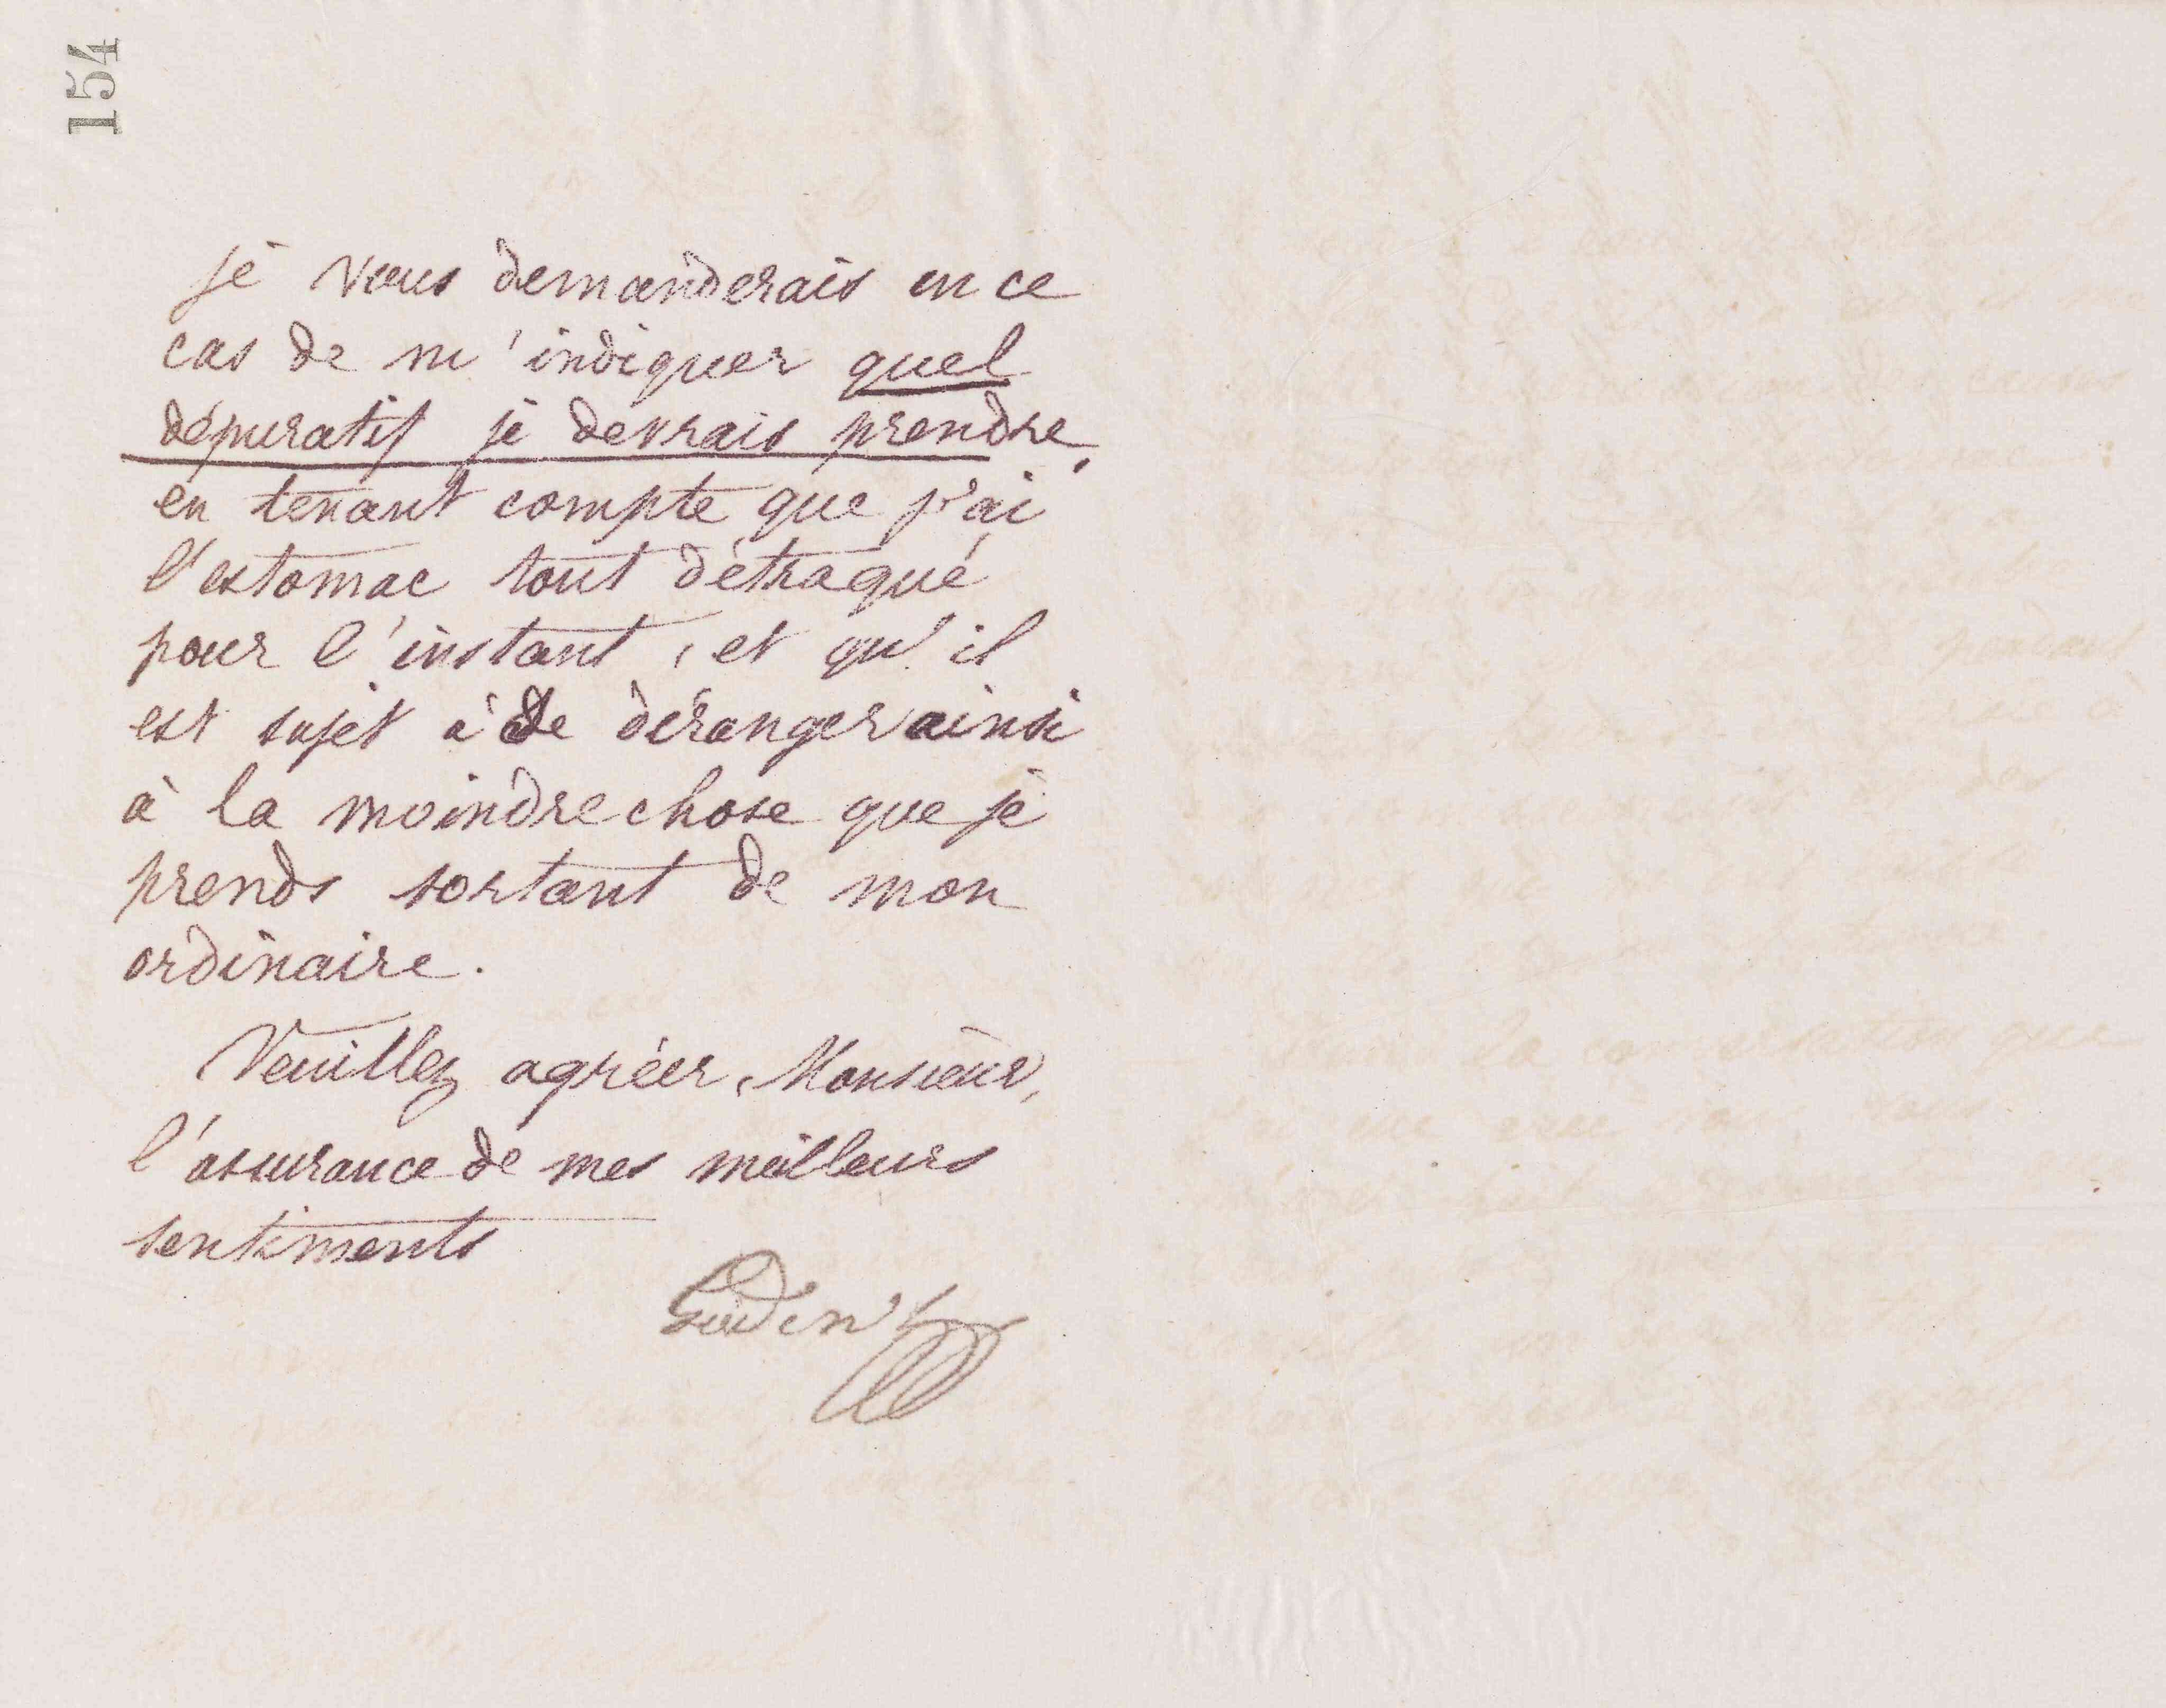 154
je vous demanderais en ce
cas de m'indiquer quel
dépuratif je devrais prendre,
en tenant compte que j'ai
l'estomac tout détraqué
pour l'instant, et qu'il
est sujet à se déranger ainsi
à la moindre chose que je
prends sortant de mon
ordinaire.
Veuillez agréer, Monsieur,
l'assurance de mes meilleurs
sentiments